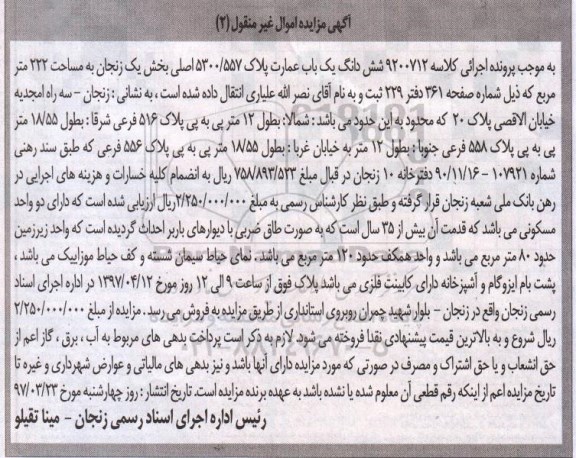 آگهی مزایده اموال غیر منقول (۲)
به موجب پرونده اجرائی کلاسه ۹۲۰۰۷۱۲ شش دانگ یک باب عمارت پلاک ۵۳۰۰/۵۵۷ اصلی بخش یک زنجان به مساحت ۲۲۲ متر
مربع که ذیل شماره صفحه ۳۶۱ دفتر ۲۲۹ ثبت و به نام آقای نصر الله علیاری انتقال داده شده است ، به نشانی : زنجان - سه راه امجدیه
خیابان الاقصی پلاک ۲۰ که محدود به این حدود می باشد : شمالا: بطول ۱۲ متر پی به پی پلاک ۵۱۶ فرعی شرقا : بطول ۱۸/۵۵ متر
پی به پی پلاک ۵۵۸ فرعی جنوبا : بطول ۱۲ متر به خیابان غربا : بطول ۱۸/۵۵ متر پی به پی پلاک ۵۵۶ فرعی که طبق سند رهنی
شماره ۱۰۷۹۲۱ - ۹۰/۱۱/۱۶ دفترخانه ۱۰ زنجان در قبال مبلغ ۷۵۸/۸۹۳/۵۳۳ ریال به انضمام کلیه خسارات و هزینه های اجرایی در
رهن بانک ملی شعبه زنجان قرار گرفته و طبق نظر کارشناس رسمی به مبلغ ۲/۲۵۰/۰۰۰/۰۰۰ریال ارزیابی شده است که دارای دو واحد
مسکونی می باشد که قدمت آن بیش از ۳۵ سال است که به صورت طاق ضربی با دیوارهای باربر احداث گردیده است که واحد زیرزمین
حدود ۸۰ متر مربع می باشد و واحد همکف حدود ۱۲۰ متر مربع می باشد . نمای حیاط سیمان شسته و کف حیاط موزاییک می باشد ،
پشت بام ایزوگام و آشپزخانه دارای کابینت فلزی می باشد پلاک فوق از ساعت ۹ الی ۱۲ روز مورخ ۱۳۹۷/۰۴/۱۲ در اداره اجرای اسناد
رسمی زنجان واقع در زنجان - بلوار شهید چمران روبروی استانداری از طریق مزایده به فروش می رسد . مزایده از مبلغ ۲/۲۵۰/۰۰۰/۰۰۰
ریال شروع و به بالاترین قیمت پیشنهادی نقدا فروخته می شود. لازم به ذکر است پرداخت بدهی های مربوط به آب ، برق ، گاز اعم از
حق انشعاب و یا حق اشتراک و مصرف در صورتی که مورد مزایده دارای آنها باشد و نیز بدهی های مالیاتی و عوارض شهرداری و غیره تا
تاریخ مزایده اعم از اینکه رقم قطعی آن معلوم شده یا نشده باشد به عهده برنده مزایده است. تاریخ انتشار : روز چهارشنبه مورخ ۹۷/۰۳/۲۳
رئیس اداره اجرای اسناد رسمی زنجان - مینا تقیلو